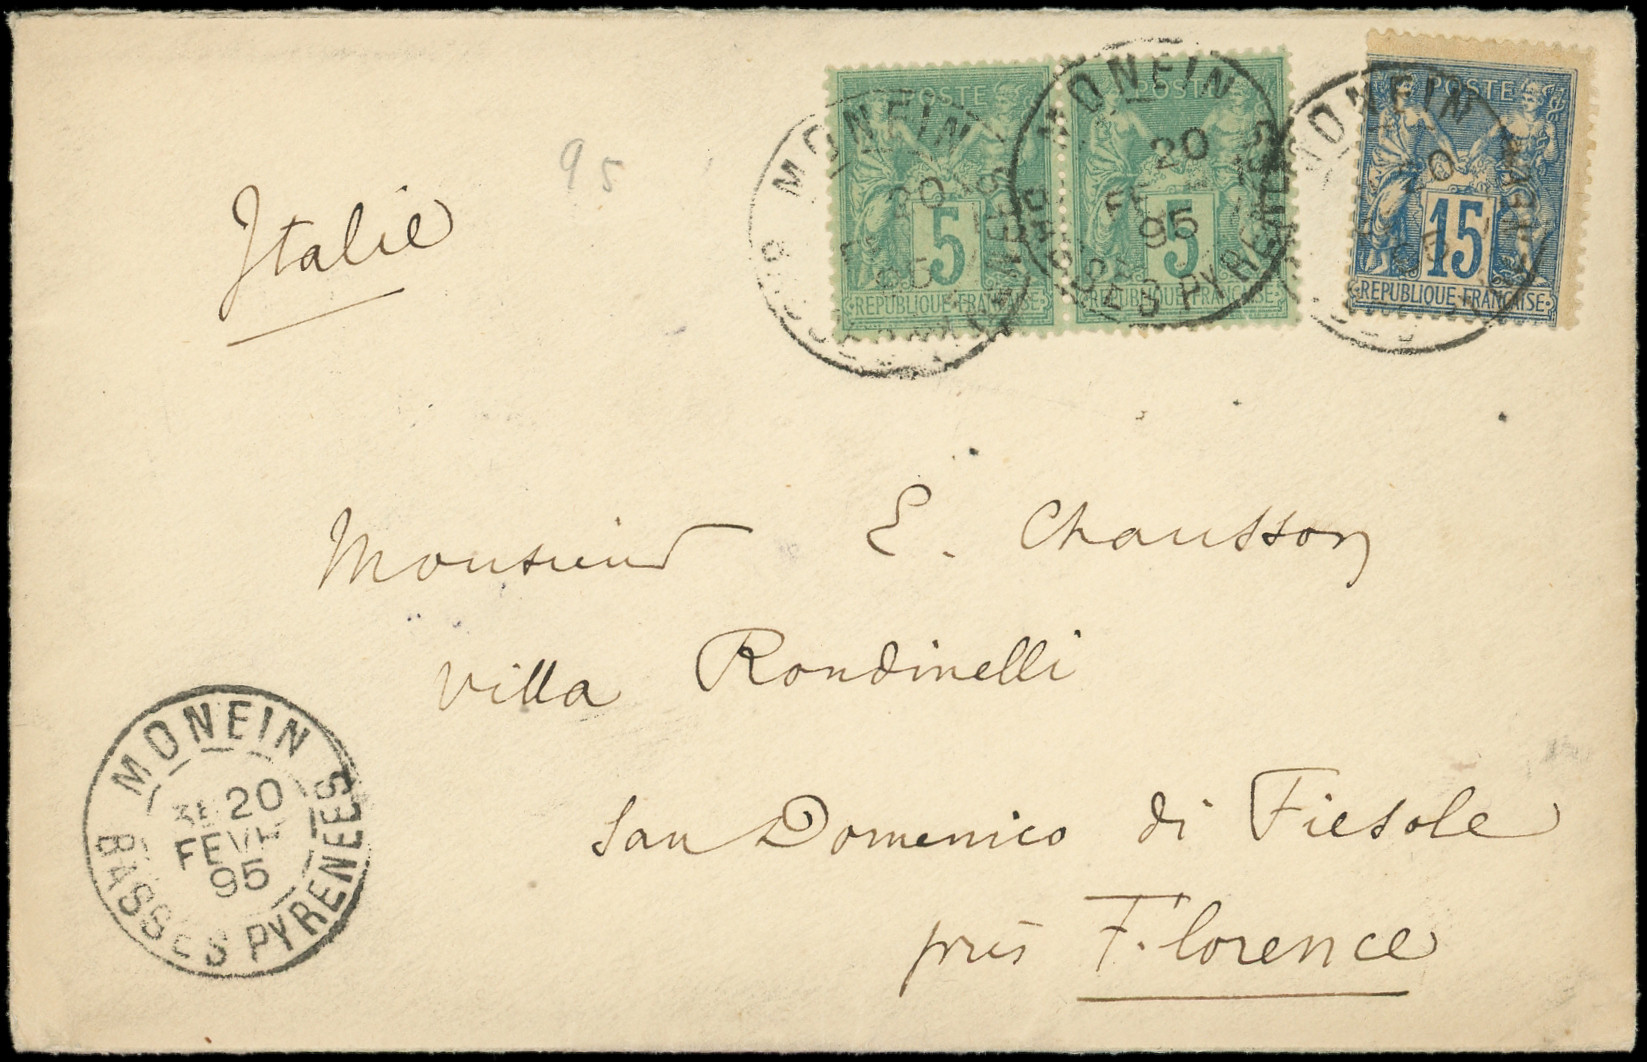 95
Italie
POSTE
5
REPUBLIQUE FRANÇAISE
POSTE
5
REPUBLIQUE FRANÇAISE
POSTE
15
REPUBLIQUE FRANÇAISE
MONEIN
20
95
MONEIN
20
95
BASSES PYRENEES
MONEIN
20
Monsieur E. Chausson
Villa Rondinelli
San Domenico di Fiesole
près Florence
MONEIN
3E 20
FEVR
95
BASSES PYRENEES